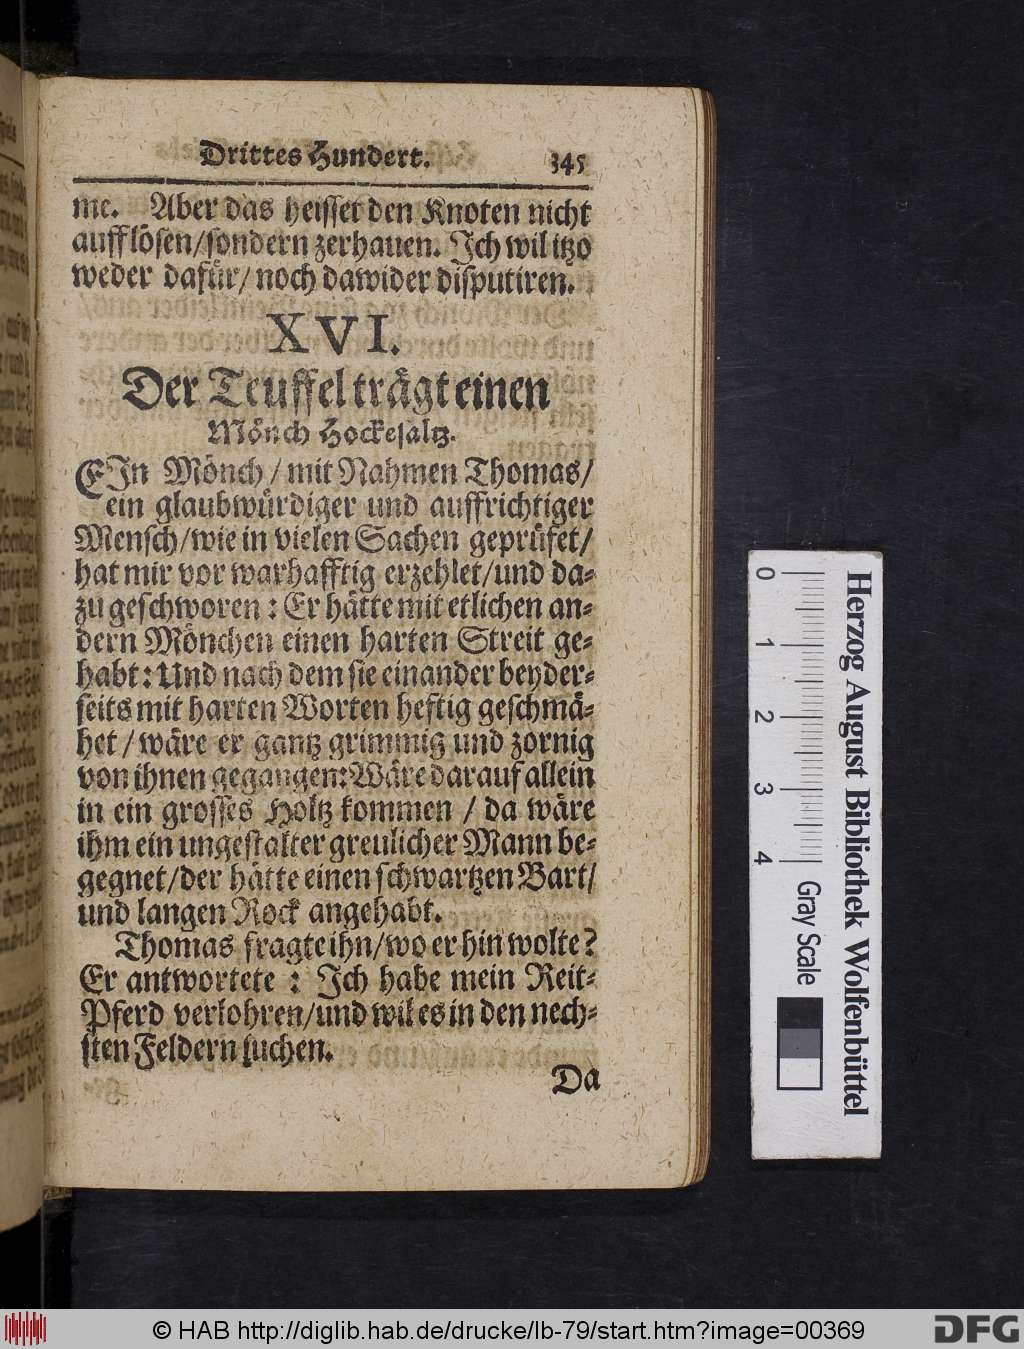 Drittes Hundert. 345
me. Aber das heisset den Knoten nicht
aufflösen/sondern zerhauen. Ich wil itzo
weder dafür/ noch dawider disputiren.
XVI.
Der Teuffel trägt einen
Mönch Hockesaltz.
EIn Mönch / mit Nahmen Thomas/
ein glaubwürdiger und auffrichtiger
Mensch/wie in vielen Sachen geprüfet/
hat mir vor warhafftig erzehlet/und da-
zu geschworen : Er hätte mit etlichen an-
dern Mönchen einen harten Streit ge-
habt: Und nach dem sie einander beyder-
seits mit harten Worten heftig geschmä-
het / wäre er gantz grimmig und zornig
von ihnen gegangen: Wäre darauf allein
in ein grosses Holtz kommen / da wäre
ihm ein ungestalter greulicher Mann be-
gegnet/der hätte einen schwartzen Bart/
und langen Rock angehabt.
Thomas fragte ihn/wo er hin wolte?
Er antwortete : Ich habe mein Reit-
Pferd verlohren/und wil es in den nech-
sten Feldern suchen.
Da
0 1 2 3 4
Gray Scale
Herzog August Bibliothek Wolfenbüttel
© HAB http://diglib.hab.de/drucke/lb-79/start.htm?image=00369
DFG